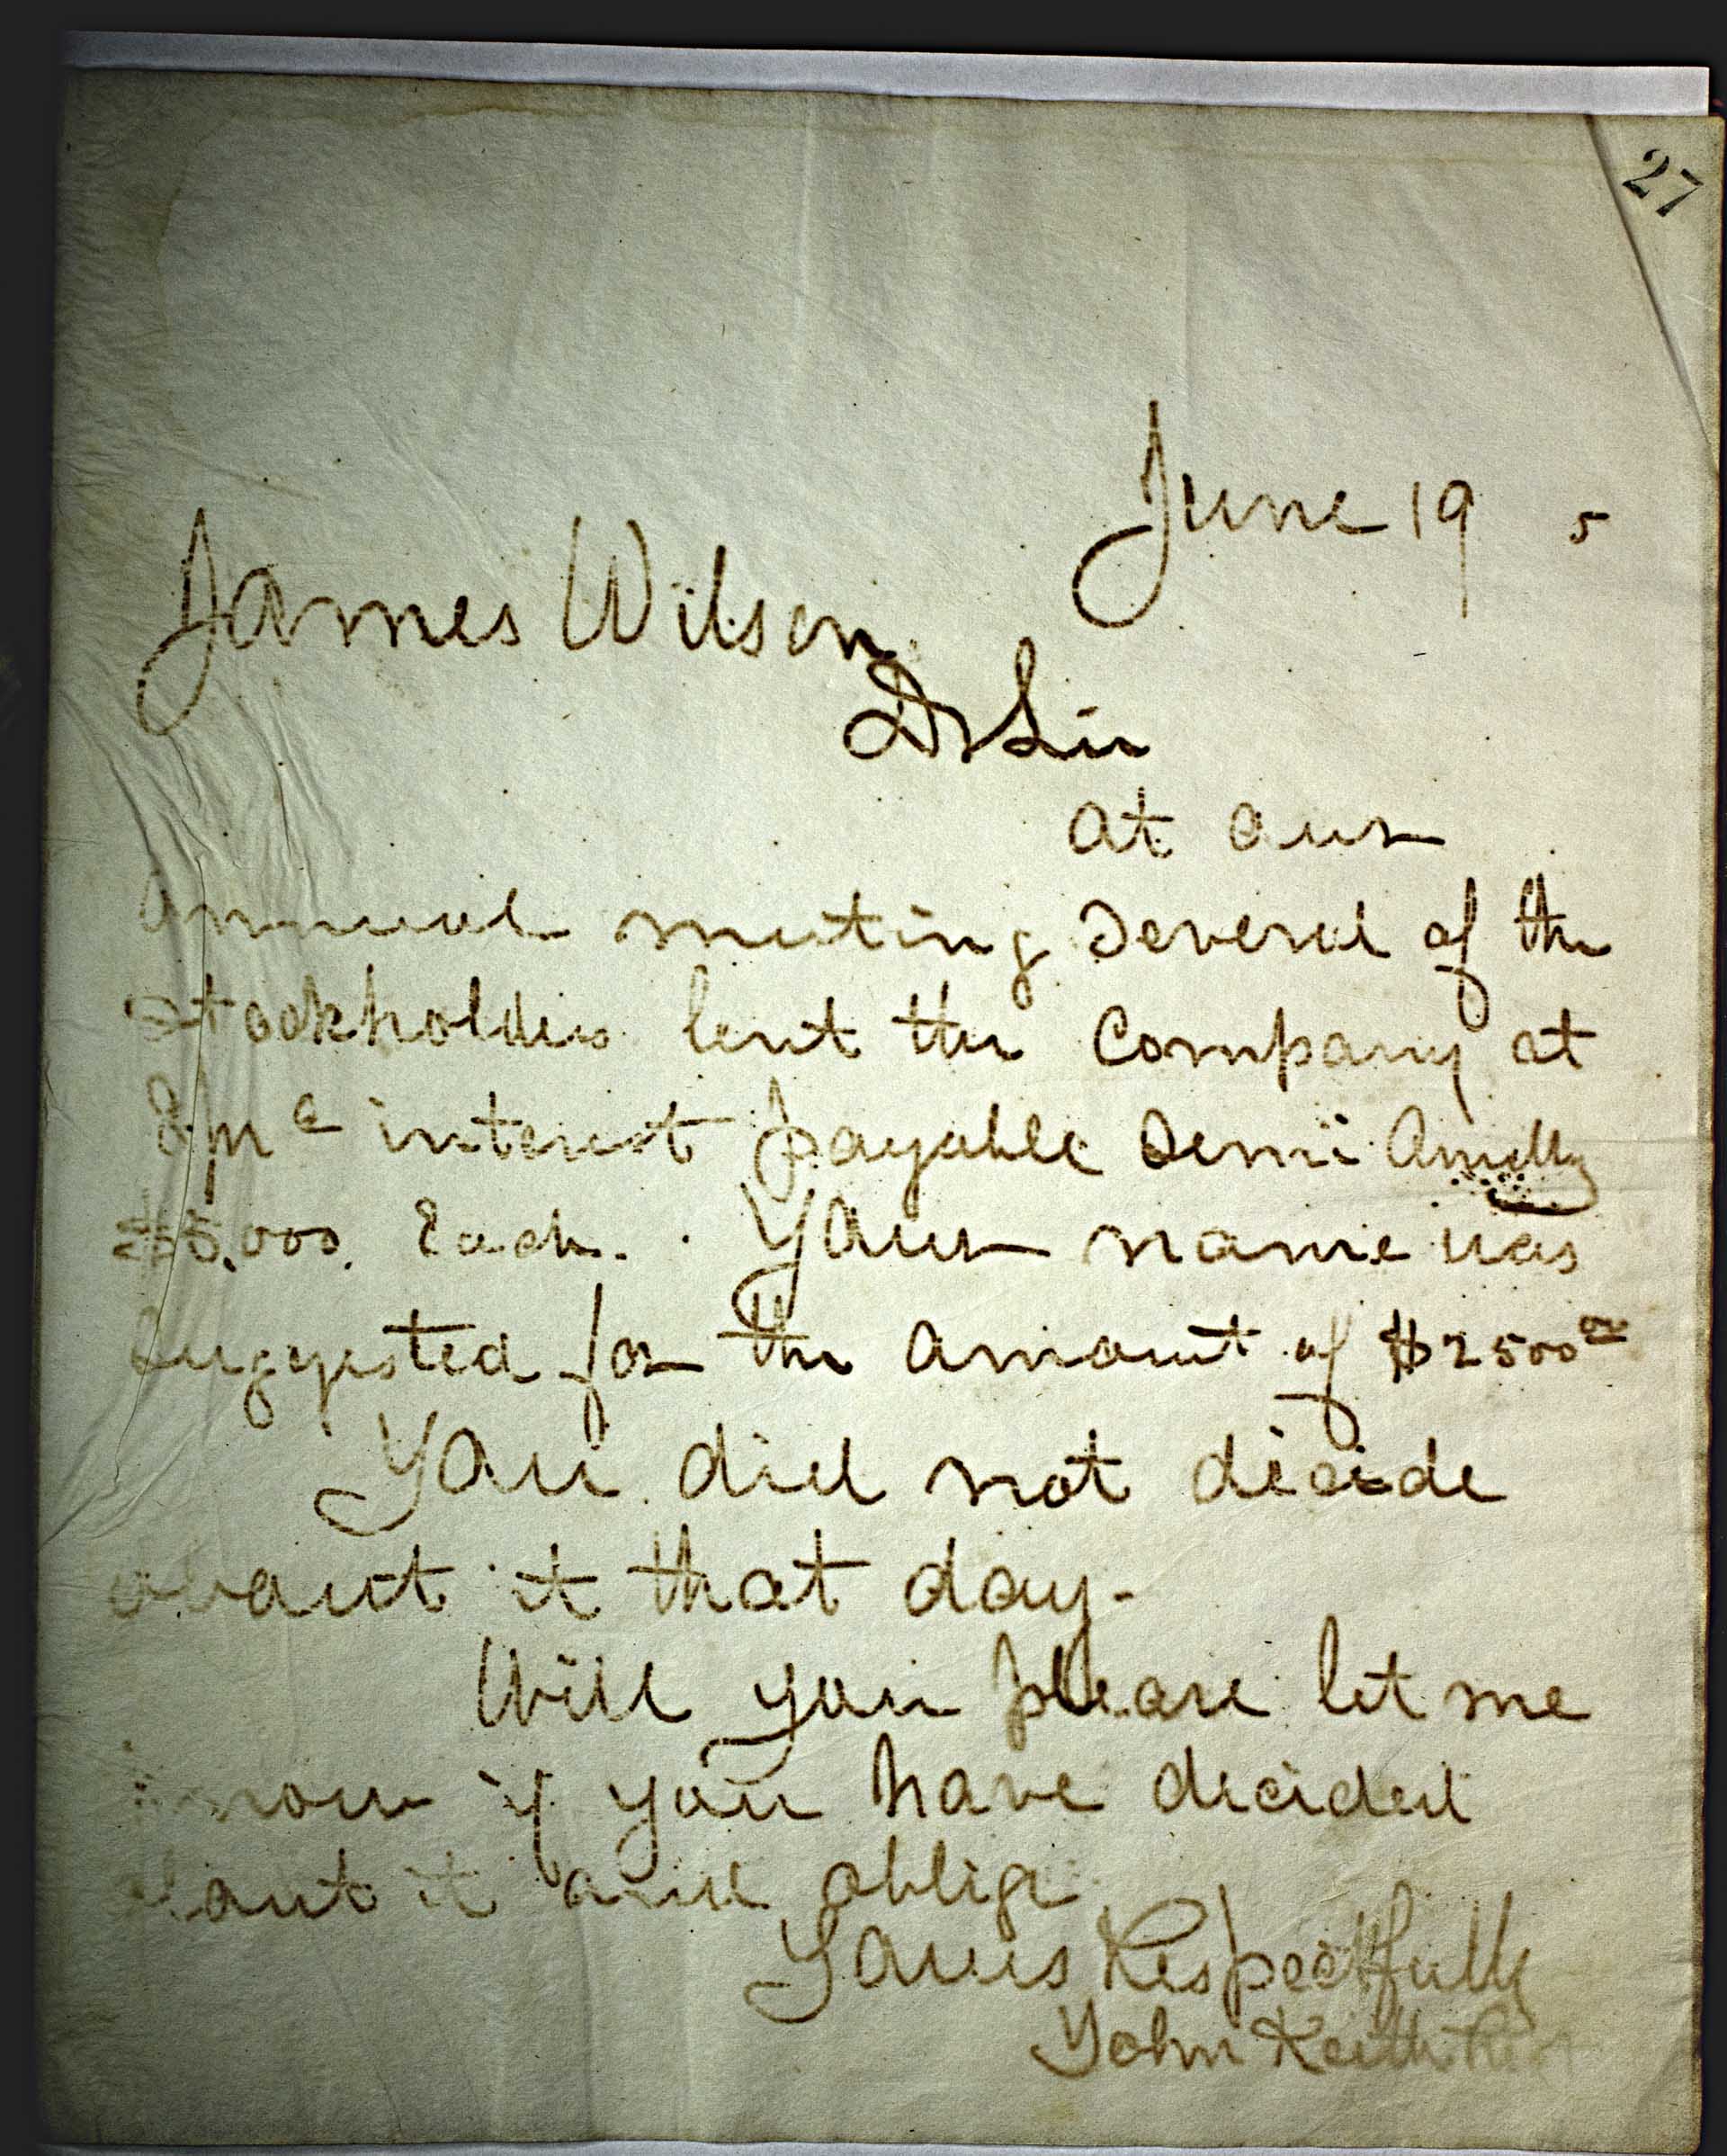 27
June 19 5
James Wilson
Dr Sir
at our
annual meeting several of the
stockholders lent the Company at
interest payable semi Annlly
$5,000. Each. Your name was
suggested for the amount of $2500 00
You did not decide
about it that day-
Will you please let me
know if you have decided
about it and oblige
Yours Respectfully
John Keith